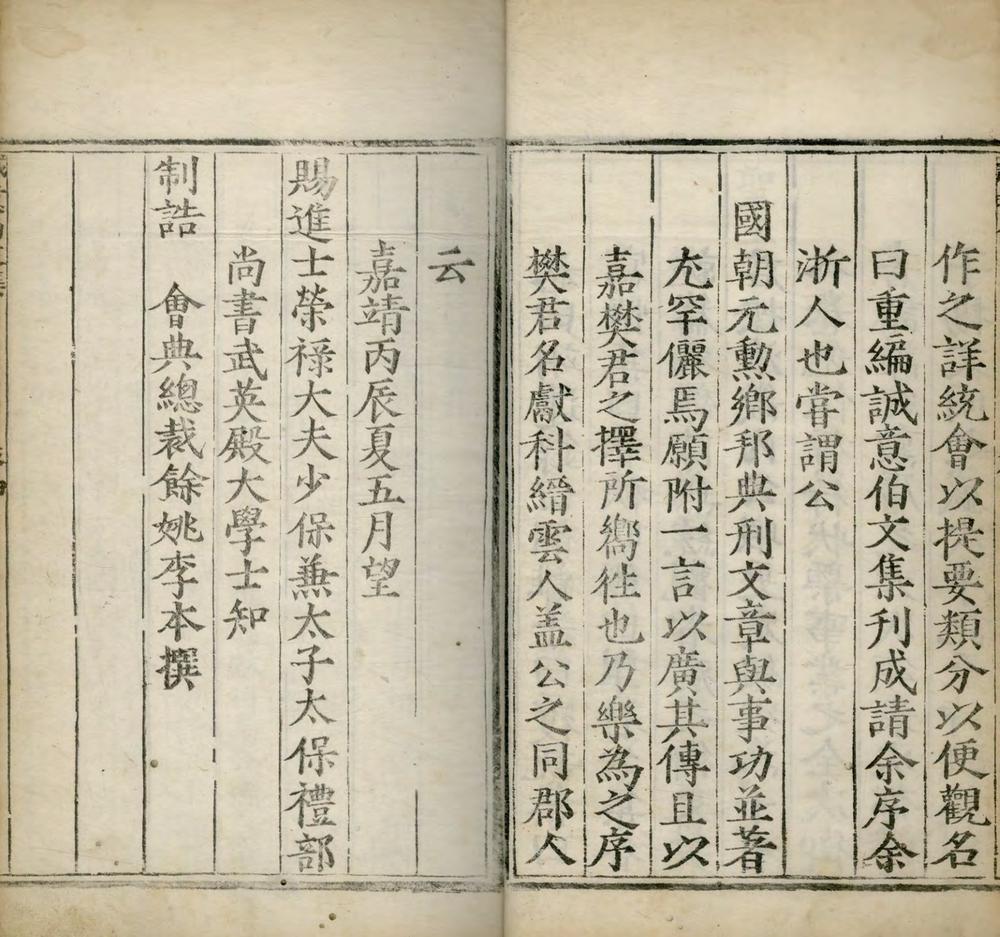 作之詳統會以提要類分以便觀名
曰重編誠意伯文集刊成請余序余
浙人也嘗謂公
國朝元勳鄉邦典刑文章與事功並著
尤罕儷焉願附一言以廣其傳且以
嘉樊君之擇所嚮徃也乃樂為之序
樊君名獻科縉雲人盖公之同郡人
云
嘉靖丙辰夏五月望
賜進士榮祿大夫少保兼太子太保禮部
尚書武英殿大學士知
制誥 會典總裁餘姚李本撰